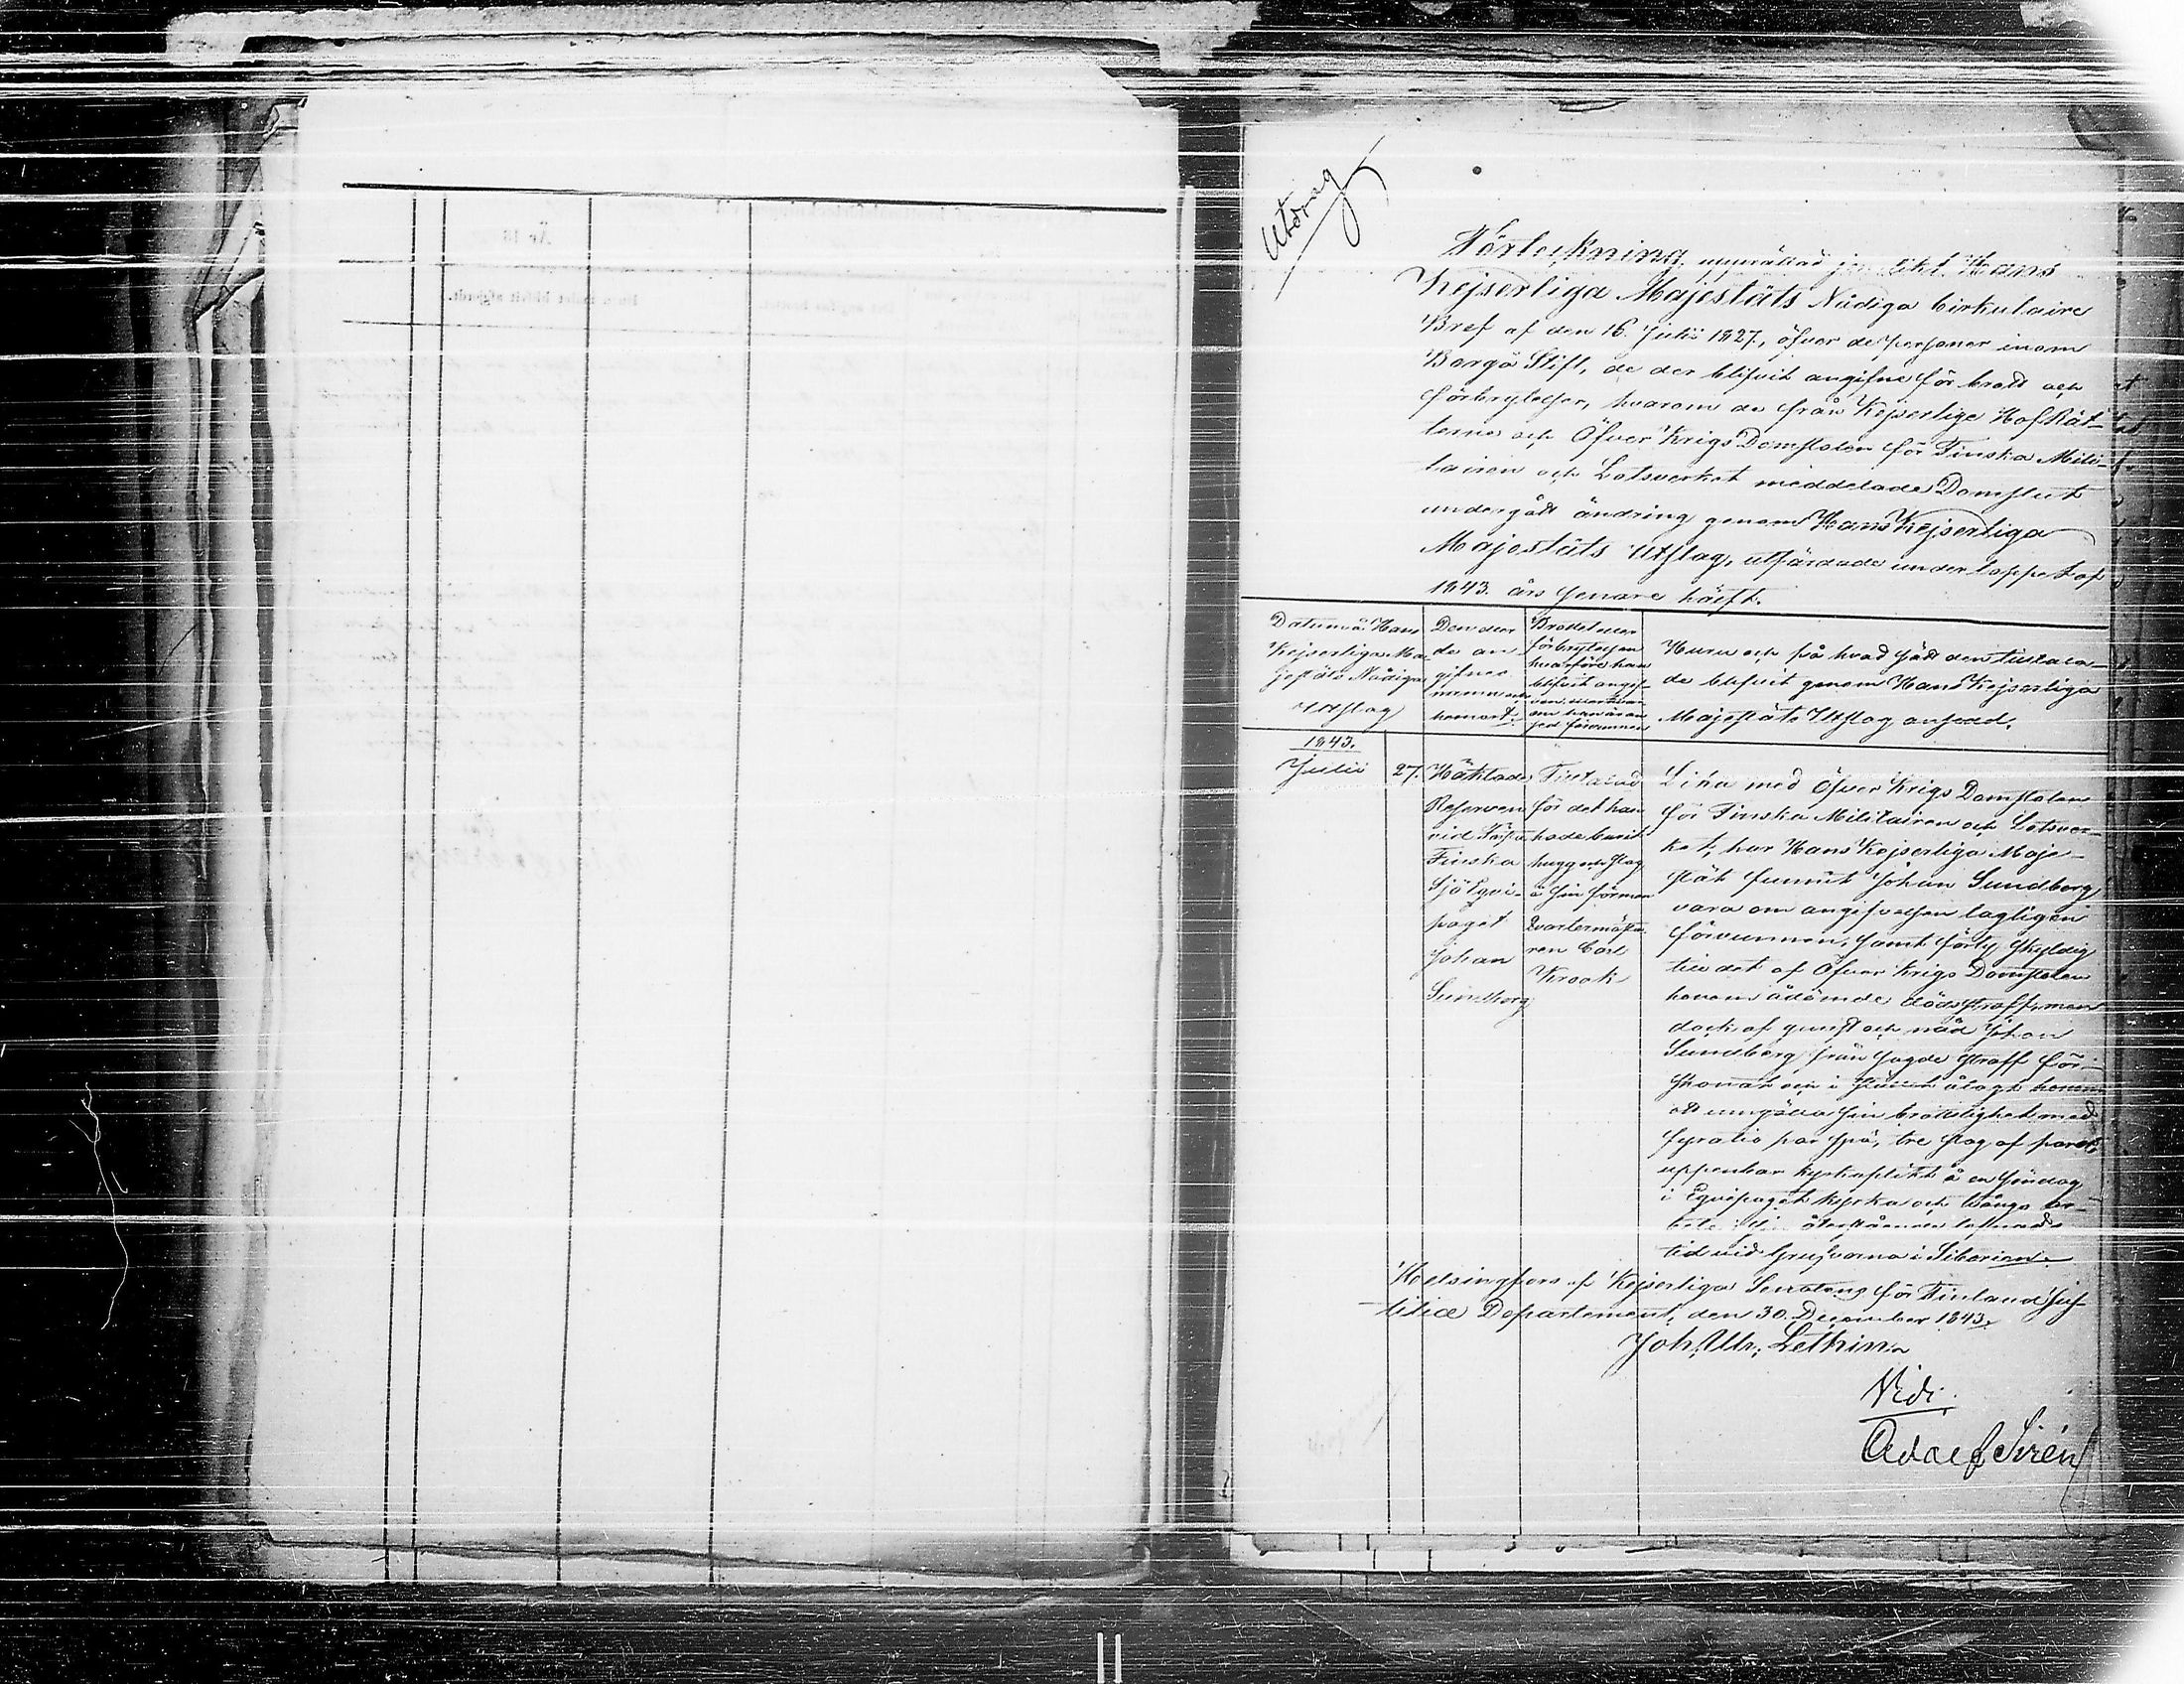 Utdrag
Förteckning, upprättad jemlikt Hans
Kejserliga Majestäts Nådiga Cirkulaire
Bref af den 16 Julii 1827, öfver de personer inom
Borgå Stift, de der blifvit angifne för brott och
förbrytelser, hvarom de från Kejserlige HofRät-
terne och Öfver Krigs Domstolen för Finska Mili-
tairen och Lotsverket meddelade Domslut
undergått ändring genom Hans Kejserliga
Majestäts Utslag, utfärdade under loppet af
1843. års senare hälft.
Datum å Hans
Kejserliga Ma-
jestäts Nådiga
Utslag
Den eller
de an-
gifnes
namn och
hemort.
Brottet eller
förbrytelsen
hvarföre han
blifvit angif-
ven, eller hvar-
om han är an-
sedd förvunnen
Huru och på hvad sätt den tilltala-
de blifvit genom Hans Kejserliga
Majestäts Utslag ansedd.
1843.
Julii
27.
Häktade
Reserven
vid Första
Finska
Sjö Eqvi-
paget
Johan
Sundberg
Tilltalad
för det han
hade burit
hugg och slag
å sin förman
Qvartermästa-
ren Carl
Krook
Lika med Öfver Krigs Domstolen
för Finska Militairen och Lotsver-
ket, har Hans Kejserliga Maje-
stät funnit Johan Sundberg
vara om angifvelsen lagligen
förvunnen, samt förty skyldig
till det af Öfver Krigs Domstolen
honom ådömde dödsstraff, men
dock af gunst och nåd Johan
Sundberg från sagde straff för-
skonat och i stället ålagt honom
att umgälla sin brottslighet med
fyratio par spö, tre slag af paret
uppenbar kyrkoplikt å en Söndag
i Eqvipaget kyrka och tvångs ar-
bete i sin återstående lefnads
tid vid Grufvorna i Siberien.
Helsingfors af Kejserliga Senatens för Finland Jus-
titiæ Departement, den 30 December 1843.
Joh: Ulr: Lethin
Vidi,
Adolf Sirén